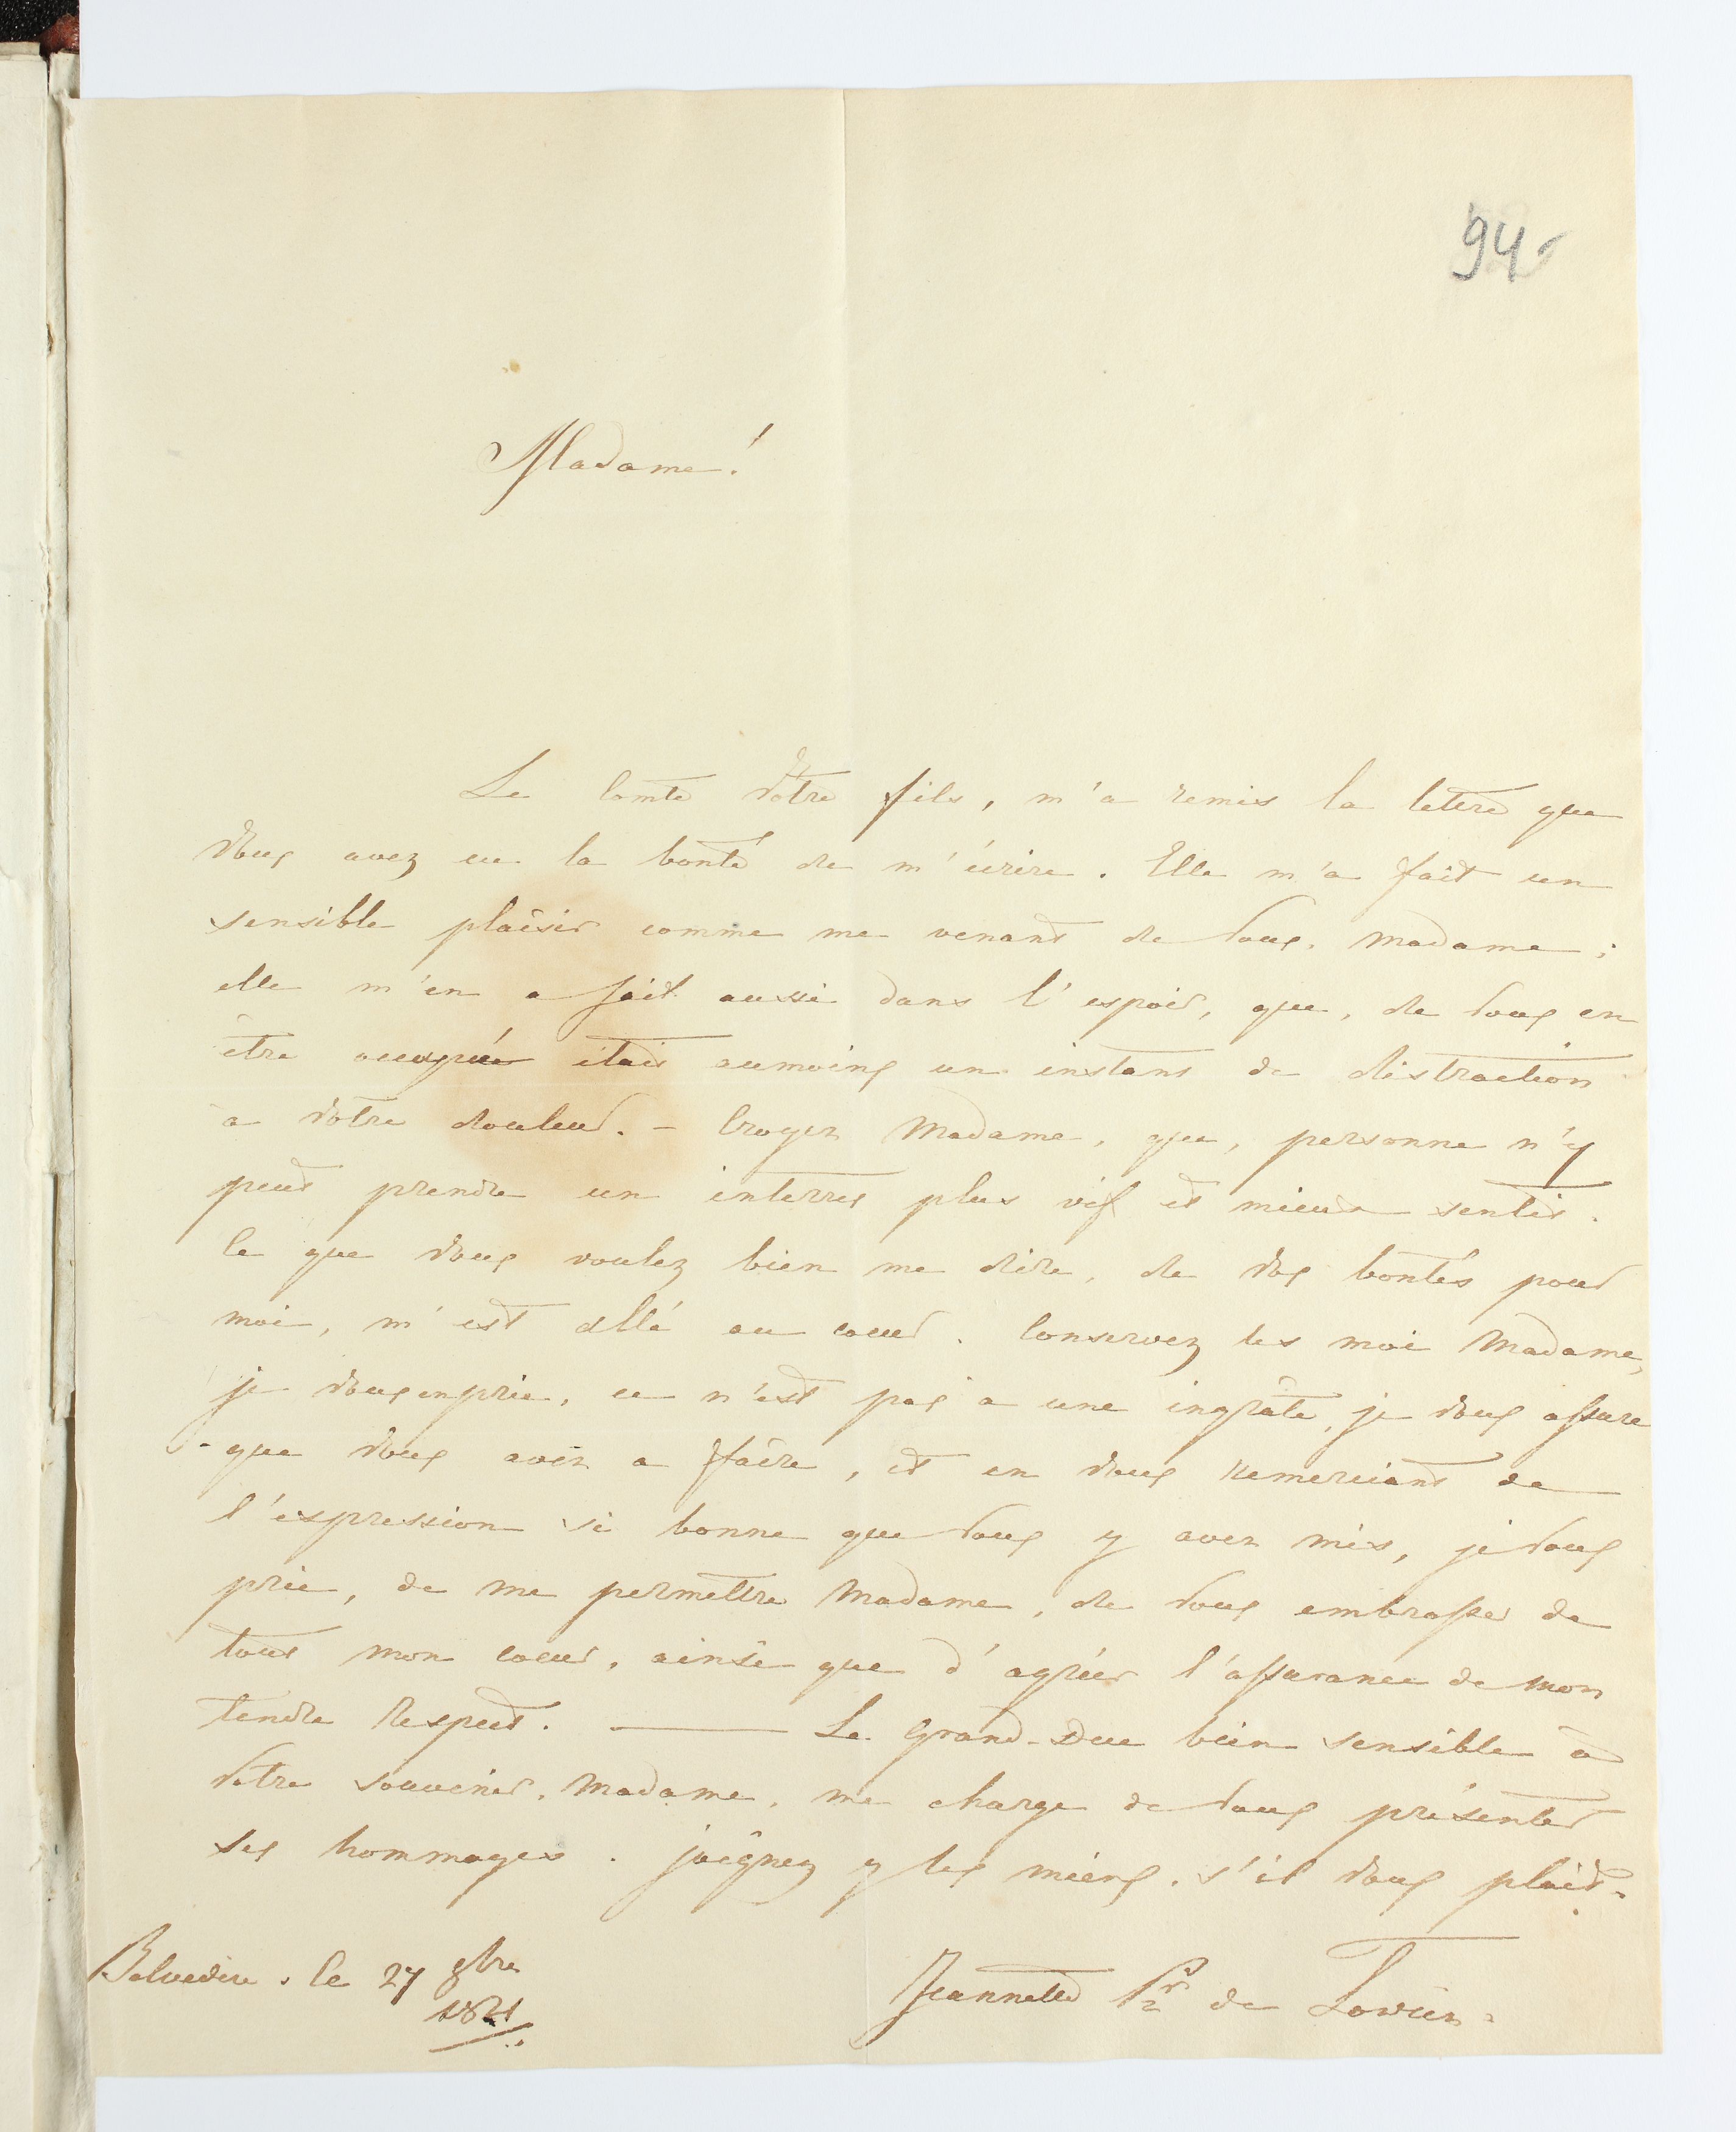 94
Madame!
Le Comte Votre fils, m'a remis la lettre que
Vous avez eu la bonté de m'écrire. Elle m'a fait un
sensible plaisir comme me venant de Vous, Madame;
elle m'en a fait aussi dans l'espoir, que, de Vous en
être occupée était aumoins un instant de distraction
a Votre douleur. – Croyez Madame, que, personne n'y
peut prendre un interret plus vif et mieux sentit.
Ce que Vous voulez bien me dire, de Vos bontés pour
moi, m'est allé au coeur. Conservez les moi Madame,
je Vous en prie, ce n'est pas a une ingrâte, je Vous assure
que Vous avez a ffaire, et en Vous remerciant de
l'expression si bonne que Vous y avez mis, je Vous
prie, de me permettre Madame, de Vous embrasser de
tout mon coeur, ainsi que d'agréer l'assurance de mon
tendre Respect. — Le Grand-Duc bien sensible à
Votre souvenir, Madame, me charge de Vous présenter
ses hommages. joignez y les miens, s'il Vous plait.
Belvedère, le 27 gbre Jeannette de Lowicz.
1821